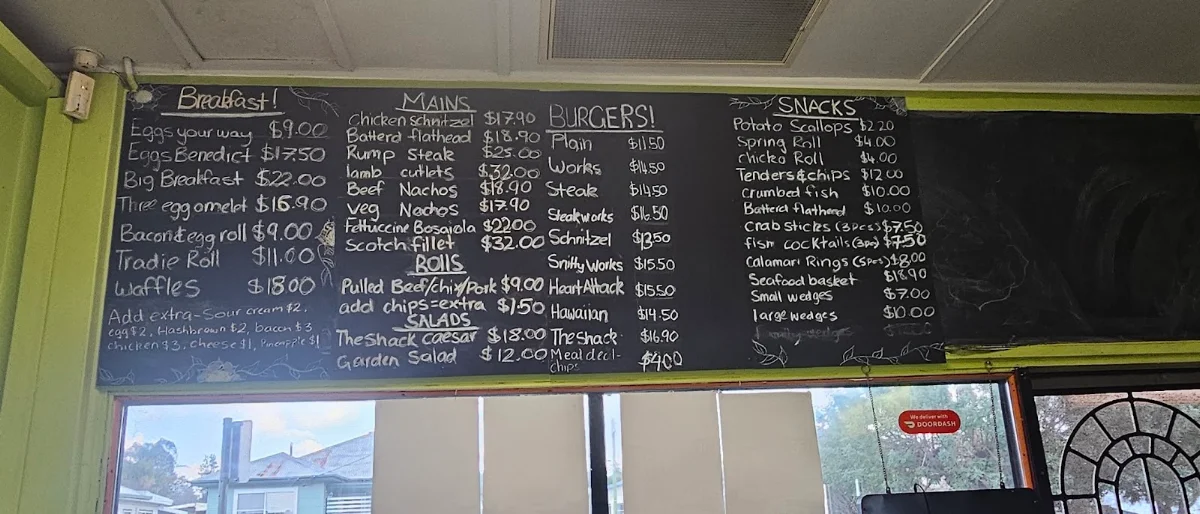 Breakfast!
Eggs your way $9.00
Eggs Benedict $17.50
Big Breakfast $22.00
Three egg omelet $16.90
Bacon & egg roll $9.00
Tradie Roll $11.00
Waffles $18.00
Add extra - Sour cream $2,
egg $2, Hashbrown $2, bacon $3
chicken $3, cheese $1, Pineapple $1
MAINS
Chicken schnitzel $17.90
Batterd flathead $18.90
Rump Steak $25.00
lamb cutlets $32.00
Beef Nachos $18.90
Veg Nachos $17.90
Fettuccine Bosaiola $22.00
Scotch fillet $32.00
ROLLS
Pulled Beef/chix/Pork $9.00
add chips=extra $1.50
SALADS
The Shack caesar $18.00
Garden Salad $12.00
BURGERS!
Plain $11.50
Works $14.50
Steak $14.50
Steakworks $16.50
Schnitzel $13.50
Snitty Works $15.50
Heart Attack $15.50
Hawaiian $14.50
The shack $16.90
Meal deal-
chips $4.00
SNACKS
Potato Scallops $2.20
Spring Roll $4.00
chicko Roll $4.00
Tenders & chips $12.00
crumbed fish $10.00
Batterd flathead $10.00
crab sticks (3pces) $7.50
fish cocktails (3pce) $7.50
Calamari Rings (5pcs) $8.00
Seafood basket $18.90
Small wedges $7.00
large wedges $10.00
We deliver with
DOORDASH